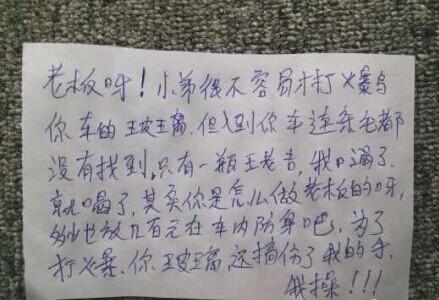 老板呀！小弟很不容易才打爆
你车的玻璃.但入到你车连条毛都
没有找到,只有一瓶王老吉,我口渴了.
就喝了,其实你是怎么做老板的呀,
多少也放几百元在车内防身吧,为了
打爆.你玻璃,还搞伤了我的手.
我操!!!